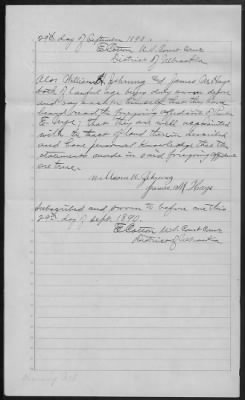 29th day of September 1890.
E Cotton U.S. Court Comr
District of Nebraska
Also William H. and James M. Hays
both of lawful age being duly sworn depose
and say each for himself that they have
heard read the foregoing affidavit of
E. ; that they are well acquainted
with the tract of land therein described
and have personal knowledge that the
statements made in said foregoing affidavit
are true.
William H.
James M. Hays
Subscribed and sworn to before me this
29th day of Sept. 1890.
E Cotton U.S. Court Comr
District of Nebraska